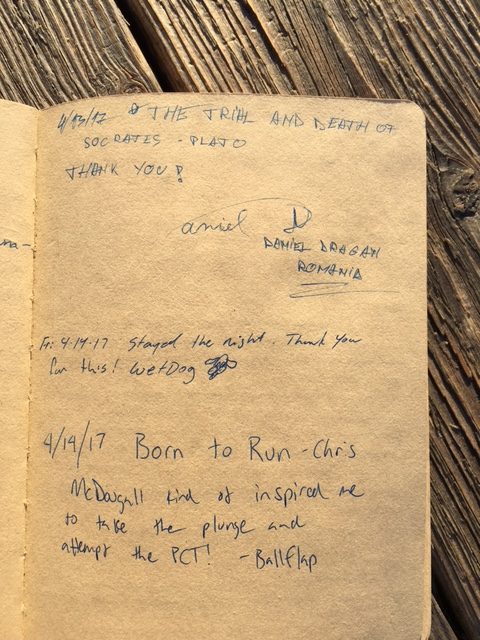 na-
4/13/17 THE TRIAL AND DEATH OF
SOCRATES - PLATO
THANK YOU!
aniel D
DANIEL DRAGAN
ROMANIA
Fri 4.14.17 Stayed the night. Thank you
for this! WetDog
4/14/17 Born to Run - Chris
McDougall kind of inspired me
to take the plunge and
attempt the PCT! - Ballflap